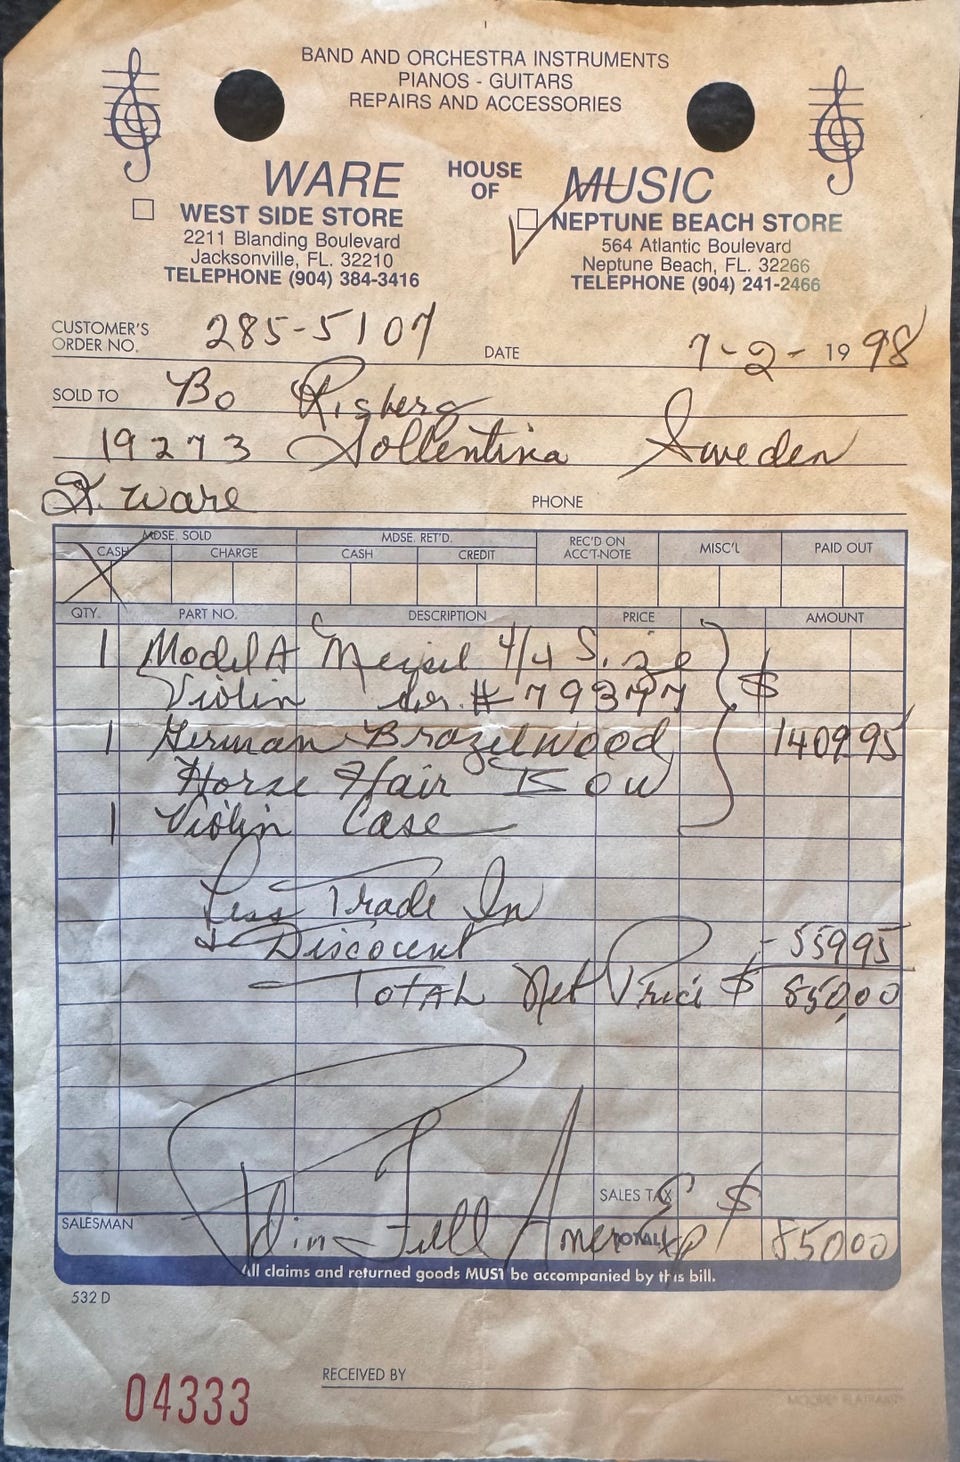 BAND AND ORCHESTRA INSTRUMENTS
PIANOS - GUITARS
REPAIRS AND ACCESSORIES
WARE HOUSE OF MUSIC
WEST SIDE STORE
2211 Blanding Boulevard
Jacksonville, FL. 32210
TELEPHONE (904) 384-3416
NEPTUNE BEACH STORE
564 Atlantic Boulevard
Neptune Beach, FL. 32266
TELEPHONE (904) 241-2466
CUSTOMER'S ORDER NO. 285-5107 DATE 7-2- 19 98
SOLD TO Bo Risberg
19273 Sollentina Sweden
Ware PHONE
MDSE. SOLD MDSE. RET'D. REC'D ON ACC'T-NOTE MISC'L PAID OUT
CASH CHARGE CASH CREDIT
QTY. PART NO. DESCRIPTION PRICE AMOUNT
1 Model A Meisel 4/4 Size
Violin ser. # 79377 $
1 German Brazelwood 1409 95
Horse Hair Bow
1 Violin Case
Less Trade In
& Discount - 559 95
Total Net Price $ 850.00
SALES TAX $
SALESMAN Pd in Full Amer Exp TOTAL 850 00
All claims and returned goods MUST be accompanied by this bill.
532 D
04333
RECEIVED BY